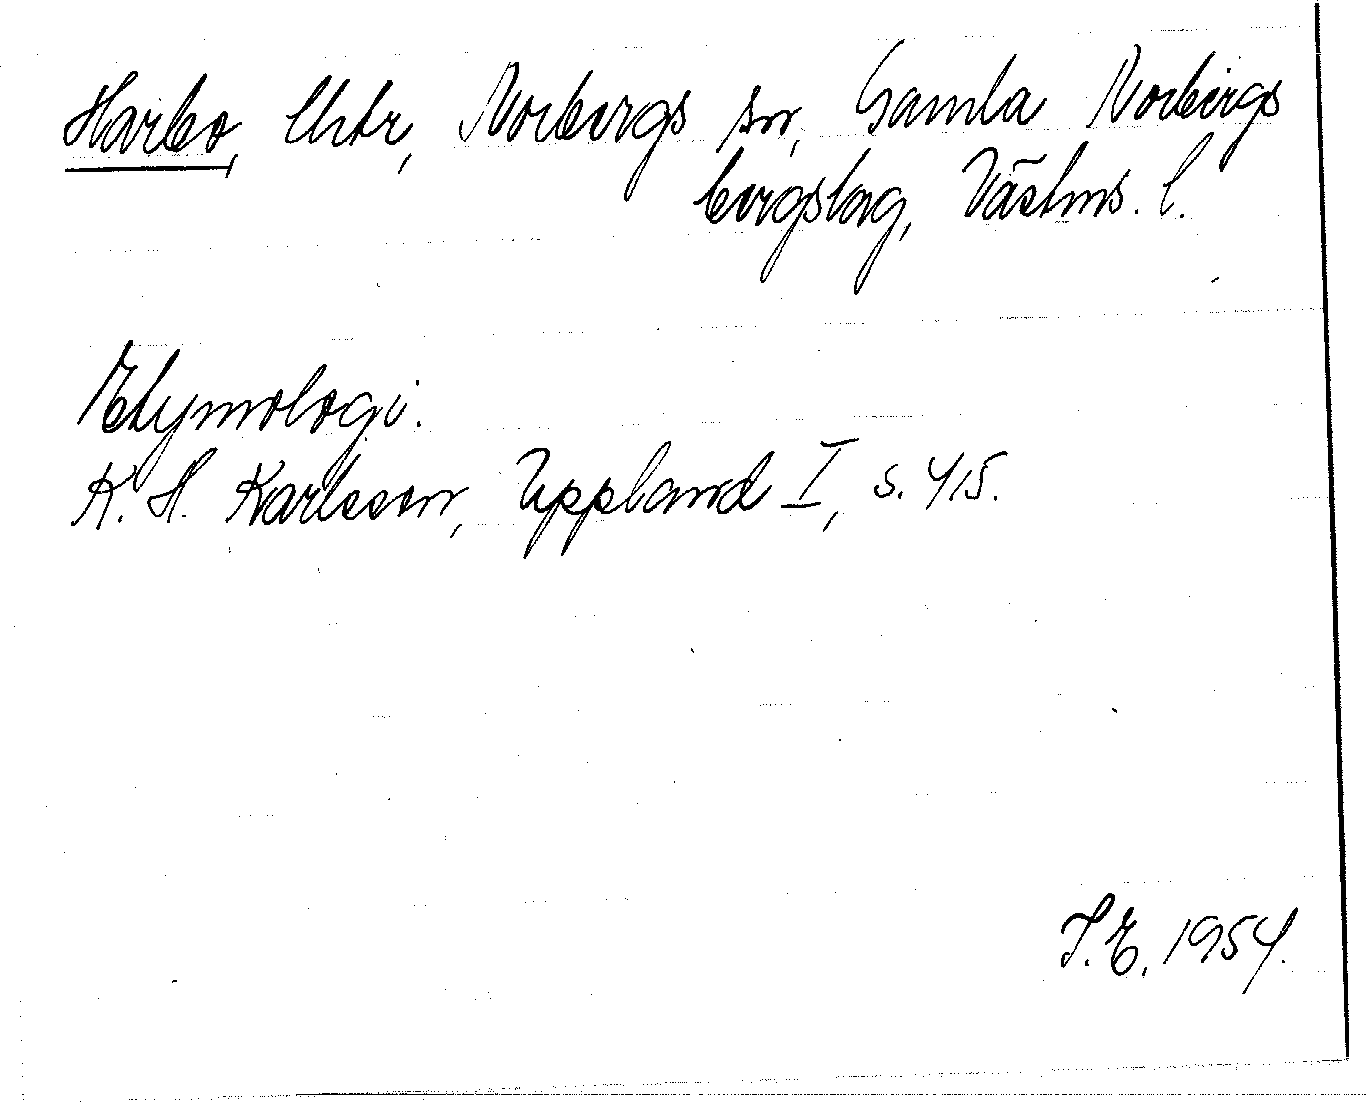 Harbo, Uhtr, Norbergs sn, Gamla Norbergs
bergslag, Västms. l.
Etymologi.
K. H. Karlsson, Uppland I, s. 415.
S.E. 1954.